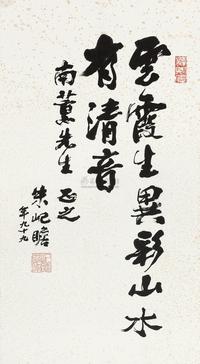 雲霞生異彩山水
有清音
南薰先生正之
朱屺瞻
年九十九